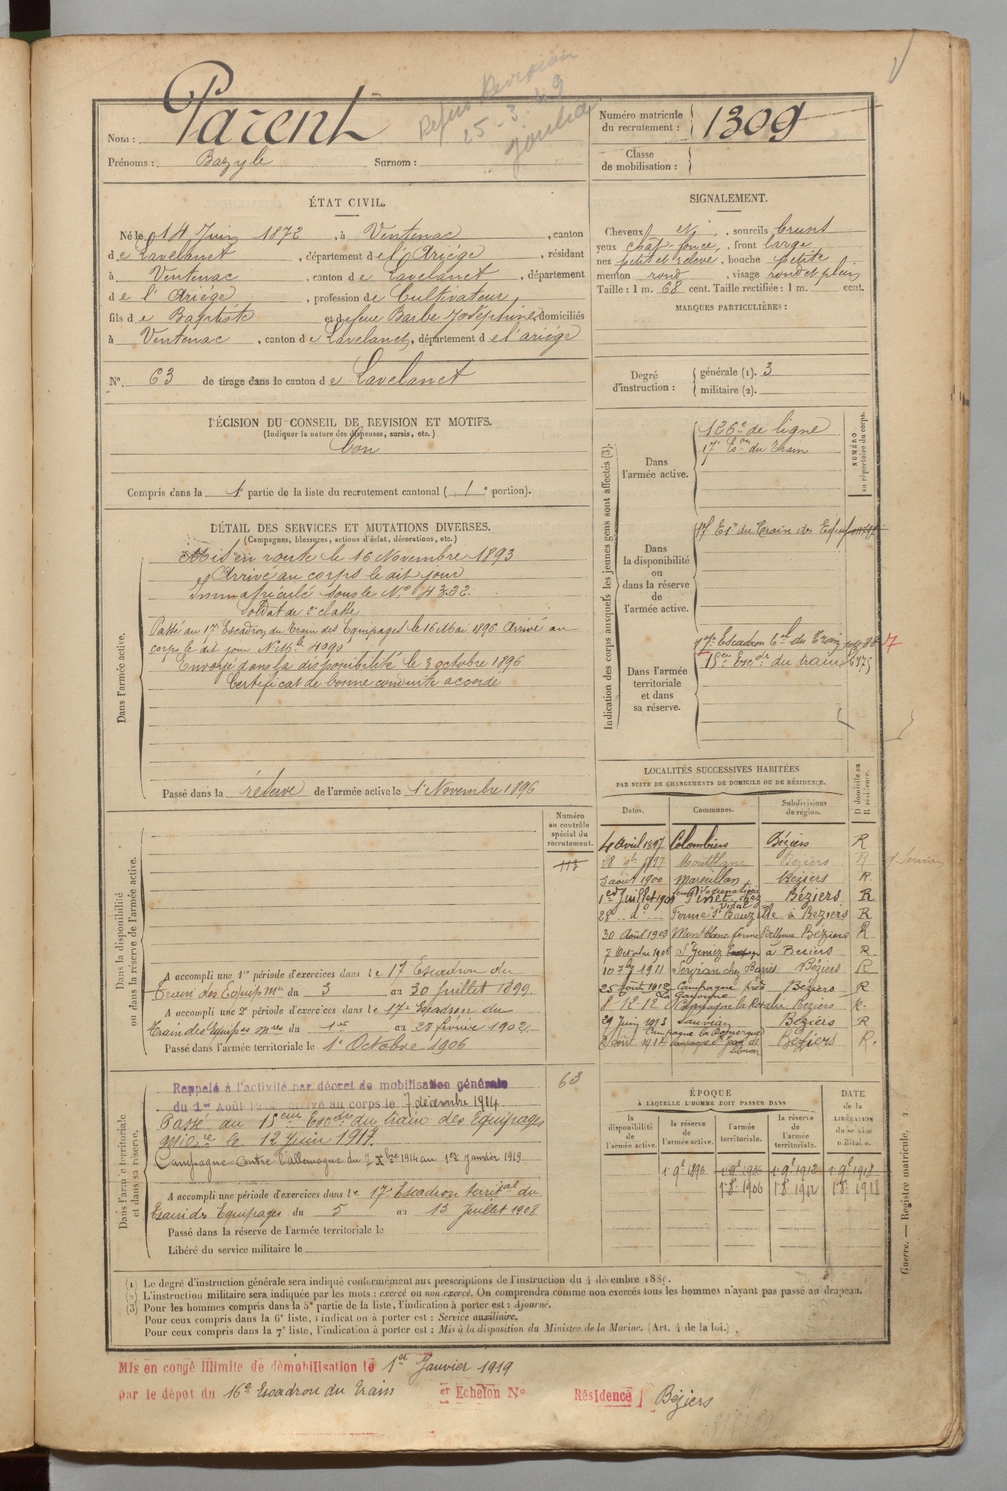 Refus Revision
25-3-19
Nom : Parent
Prénoms : Bazyle Surnom :
Numéro matricule du recrutement : 1309
Classe de mobilisation :
ÉTAT CIVIL.
Né le 14 Juin 1872, à Ventenac, canton
de Lavelanet, département de l'Ariége, résidant
à Ventenac, canton de Lavelanet, département
de l'Ariége, profession de Cultivateur,
fils de Baptiste et de feue Barbe Joséphine, domiciliés
à Ventenac, canton de Lavelanet, département de l'ariége
N°. 63 de tirage dans le canton de Lavelanet
SIGNALEMENT.
Cheveux et , sourcils bruns
yeux chat. foncé, front large
nez petit et relevé, bouche petite
menton rond, visage rond et plein
Taille : 1 m. 68 cent. Taille rectifiée : 1 m. cent.
MARQUES PARTICULIÈRES :
Degré d'instruction : générale (1). 3
militaire (2).
DÉCISION DU CONSEIL DE REVISION ET MOTIFS.
(Indiquer la nature des dispenses, sursis, etc.)
bon
Compris dans la 1e partie de la liste du recrutement cantonal ( 1e portion).
DÉTAIL DES SERVICES ET MUTATIONS DIVERSES.
(Campagnes, blessures, actions d'éclat, décorations, etc.)
Dans l'armée active.
Mis en route le 16 Novembre 1893
Arrivé au corps le dit jour
Immatriculé sous le N° 4322.
Soldat de 2e classe
Passé au 17e Escadron du Train des Equipages le 16 Mai 1896 Arrivé au
corps le dit jour N° Mle 4090
Envoyé dans la disponibilité le 3 octobre 1896
Certificat de bonne conduite accordé
Passé dans la réserve de l'armée active le 1 Novembre 1896
Indication des corps auxquels les jeunes gens sont affectés (3).
NUMÉRO au répertoire du corps.
Dans l'armée active.
126e de ligne
17e Eson du Train
Dans la disponibilité ou dans la réserve de l'armée active.
17 Esn du Train des Equip
Dans l'armée territoriale et dans sa réserve.
17e Escadron tal du Train
15eme Escdr du train
LOCALITÉS SUCCESSIVES HABITÉES
PAR SUITE DE CHANGEMENTS DE DOMICILE OU DE RÉSIDENCE.
Dates. Communes. Subdivisions de région. D domicile ou R résidence.
4 Avril 1897 Colombiers Béziers R
Montblanc Béziers R
5 août 1900 Marseillan Béziers R.
1er Juillet 190 Pinet chez Béziers R
28 do Ferme St Bauzille à Béziers R
30 Août 1903 Montblanc ferme Bellevue Béziers R
7 Octobre 1906 St Geniez à Béziers R.
10 7bre 1911 Servian chez Béziers R
25 Août 1912 Campagne près Béziers R
8 12 12 Campagne la Béziers R.
29 Juin 1913 Sauvian Béziers R
1914 Béziers R.
Numéro au contrôle spécial du recrutement.
Dans la disponibilité ou dans la réserve de l'armée active.
A accompli une 1re période d'exercices dans le 17 Escadron du
Train des Equip Mres du 3 au 30 Juillet 1899.
A accompli une 2e période d'exercices dans le 17e Escadron du
Train des Equipages Mres du 1er au 28 février 1902.
Passé dans l'armée territoriale le 1e Octobre 1906
Dans l'armée territoriale et dans sa réserve.
63
Rappelé à l'activité par décret de mobilisation générale
du 1er Août 1914 arrivé au corps le 7 décembre 1914
Passé au 15eme Escdr du train des Equipages
Milre le 12 Juin 1917.
Campagne Contre l'Allemagne du 7 Xbre 1914 au 1er Janvier 1919
A accompli une période d'exercices dans le 17e Escadron territal du
Train des Equipages du 5 au 13 Juillet 1908
Passé dans la réserve de l'armée territoriale le
Libéré du service militaire le
ÉPOQUE
À LAQUELLE L'HOMME DOIT PASSER DANS
la disponibilité de l'armée active. la réserve de l'armée active. l'armée territoriale. la réserve de l'armée territoriale. DATE de la LIBÉRATION du service militaire.
1 9e 1896 1 9e 1906 1 9e 1912 1 9e 1918
1 8e 1906 1 8e 1912 1 8e 1918
(1) Le degré d'instruction générale sera indiqué conformément aux prescriptions de l'instruction du 4 décembre 1889.
(2) L'instruction militaire sera indiquée par les mots : exercé ou non exercé. On comprendra comme non exercés tous les hommes n'ayant pas passé au drapeau.
(3) Pour les hommes compris dans la 5e partie de la liste, l'indication à porter est : Ajourné.
Pour ceux compris dans la 6e liste, l'indication à porter est : Service auxiliaire.
Pour ceux compris dans la 7e liste, l'indication à porter est : Mis à la disposition du Ministre de la Marine. (Art. 4 de la loi.)
Guerre. — Registre matricule.
Mis en congé illimité de démobilisation le 1er Janvier 1919
par le dépôt du 16e Escadron du Train et Echelon N° Résidence Béziers